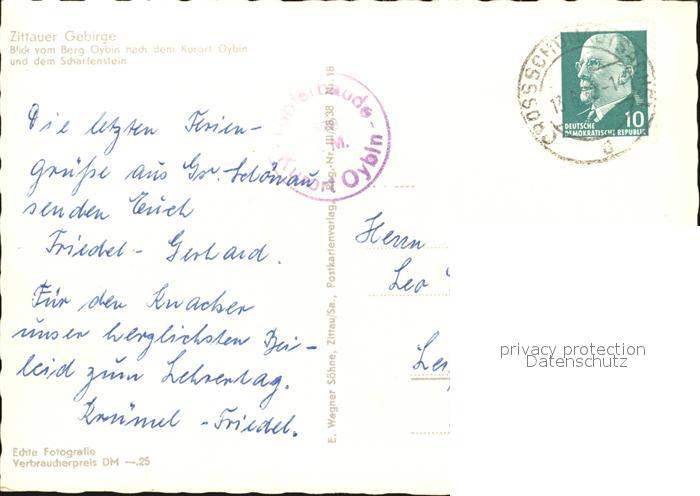 Zittauer Gebirge
Blick vom Berg Oybin nach dem Kurort Oybin
und dem Scharfenstein
Die letzten Ferien-
grüße aus Gr. Schönau
senden Euch
Friedel - Gerhard.
Für den Knacker
unser herzlichsten Bei-
leid zum Lehrertag.
Krümel - Friedel.
Echte Fotografie
Verbraucherpreis DM —.25
E. Wagner Söhne, Zittau/Sa., Postkartenverlag, Reg.-Nr. III/26/38 Nr. 18
M.
Kurort Oybin
10
DEUTSCHE
DEMOKRATISCHE REPUBLIK
a
Herrn
Leo
privacy protection
Datenschutz